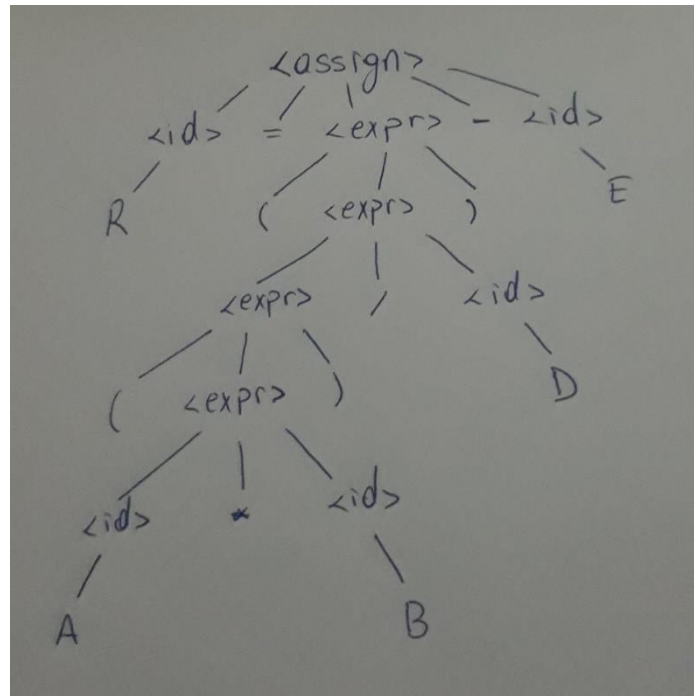 <assign>
<id> = <expr> - <id>
R ( <expr> ) E
<expr> / <id>
( <expr> ) D
<id> * <id>
A B